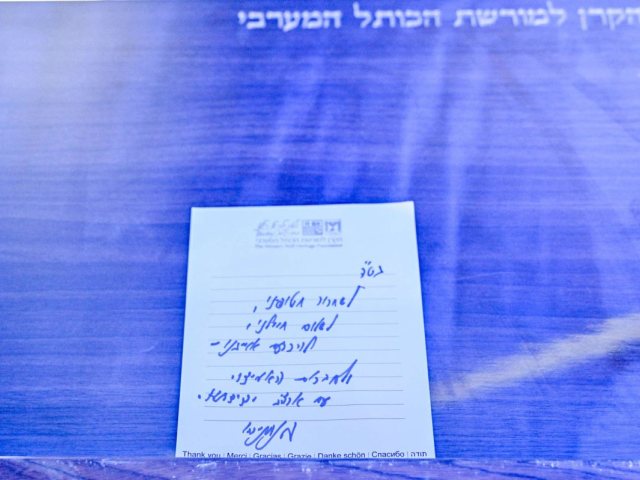 הקרן למורשת הכותל המערבי
הקרן למורשת הכותל המערבי
The Western Wall Heritage Foundation
בס"ד
לשחרור חטופינו,
לשלום חיילנו,
אויבנו –
האמיצה
עם ארה"ב
Thank you | Merci | Gracias | Grazie | Danke schön | Спасибо | תודה